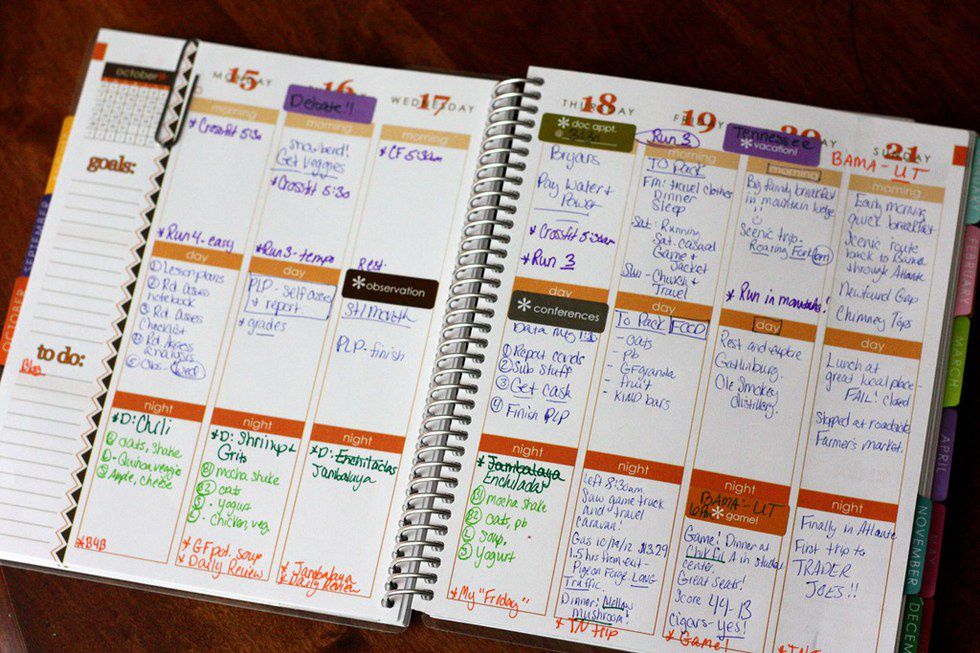 october
goals:
to do:
MONDAY
15
morning
* Crossfit 5:30
* Run 4 - easy
day
① Lesson plans
② Rd. Assess
notebook
③ Rd. Assess
Checklist
④ Rd. Assess
Analysis
night
* D: Chili
② oats, shake
D - Quinoa veggie
③ Apple, cheese
* B4B
16
Debate!!
morning
Get Veggies
* Crossfit 5:30
* Run 3 - tempo
day
PLP - self assess
+ report
* grades
night
* D: Shrimp +
Grits
B1 mocha shake
B2 oats
S - yogurt
S - chicken, veg.
* GF pot. soup
* Daily Review
WEDNESDAY
17
morning
* CF 5:30am
Rest
* observation
PLP - finish
night
* D: Enchiladas
Jambalaya
* Jambalaya
* Daily Review
THURSDAY
18
* doc appt.
Bryars
Pay Water +
Power
* Crossfit 5:30am
* Run 3
day
* conferences
① Report cards
② Sub stuff
③ Get cash
④ Finish PLP
night
* Jambalaya
Enchiladas
B1 mocha shake
B2 oats, pb
L soup,
S yogurt
* My "Friday"
FRIDAY
19
Run 3
morning
TO Pack
FM: travel clothes
Dinner
Sleep
Sat: Running
Sat - casual
Game +
Jacket
Sun - Church +
Travel
day
To Pack FOOD
- oats
- pb
- GF granola
- fruit
- KIND bars
night
Left 8:30am
Saw game truck
and travel
caravan!
Gas 10/19/12 $3.29
1.5 hrs from exit -
Pigeon Forge. LONG
Traffic
Dinner: Mellow
Mushroom!
* TN trip
20
Tennessee
* vacation!
morning
Big family breakfast
in mountain lodge
Scenic trip -
Roaring Fork
* Run in mountains!
day
Rest and explore
Gatlinburg.
Ole Smokey
distillery.
night
BAMA - UT
* game!
Game! Dinner at
Chik Fil A in student
center.
Great seats!
Score 44-13
Cigars - yes!
* Game!
SUNDAY
21
BAMA - UT
morning
Early morning
quick breakfast
Scenic route
back to Banner
through Atlanta
Newfound Gap
Chimney Tops
day
Lunch at
great local place -
FAIL! closed
Stopped at roadside
Farmer's market.
night
Finally in Atlanta
First trip to
TRADER
JOES!!
SEPTEMBER
OCTOBER
FEBRUARY
MARCH
APRIL
NOVEMBER